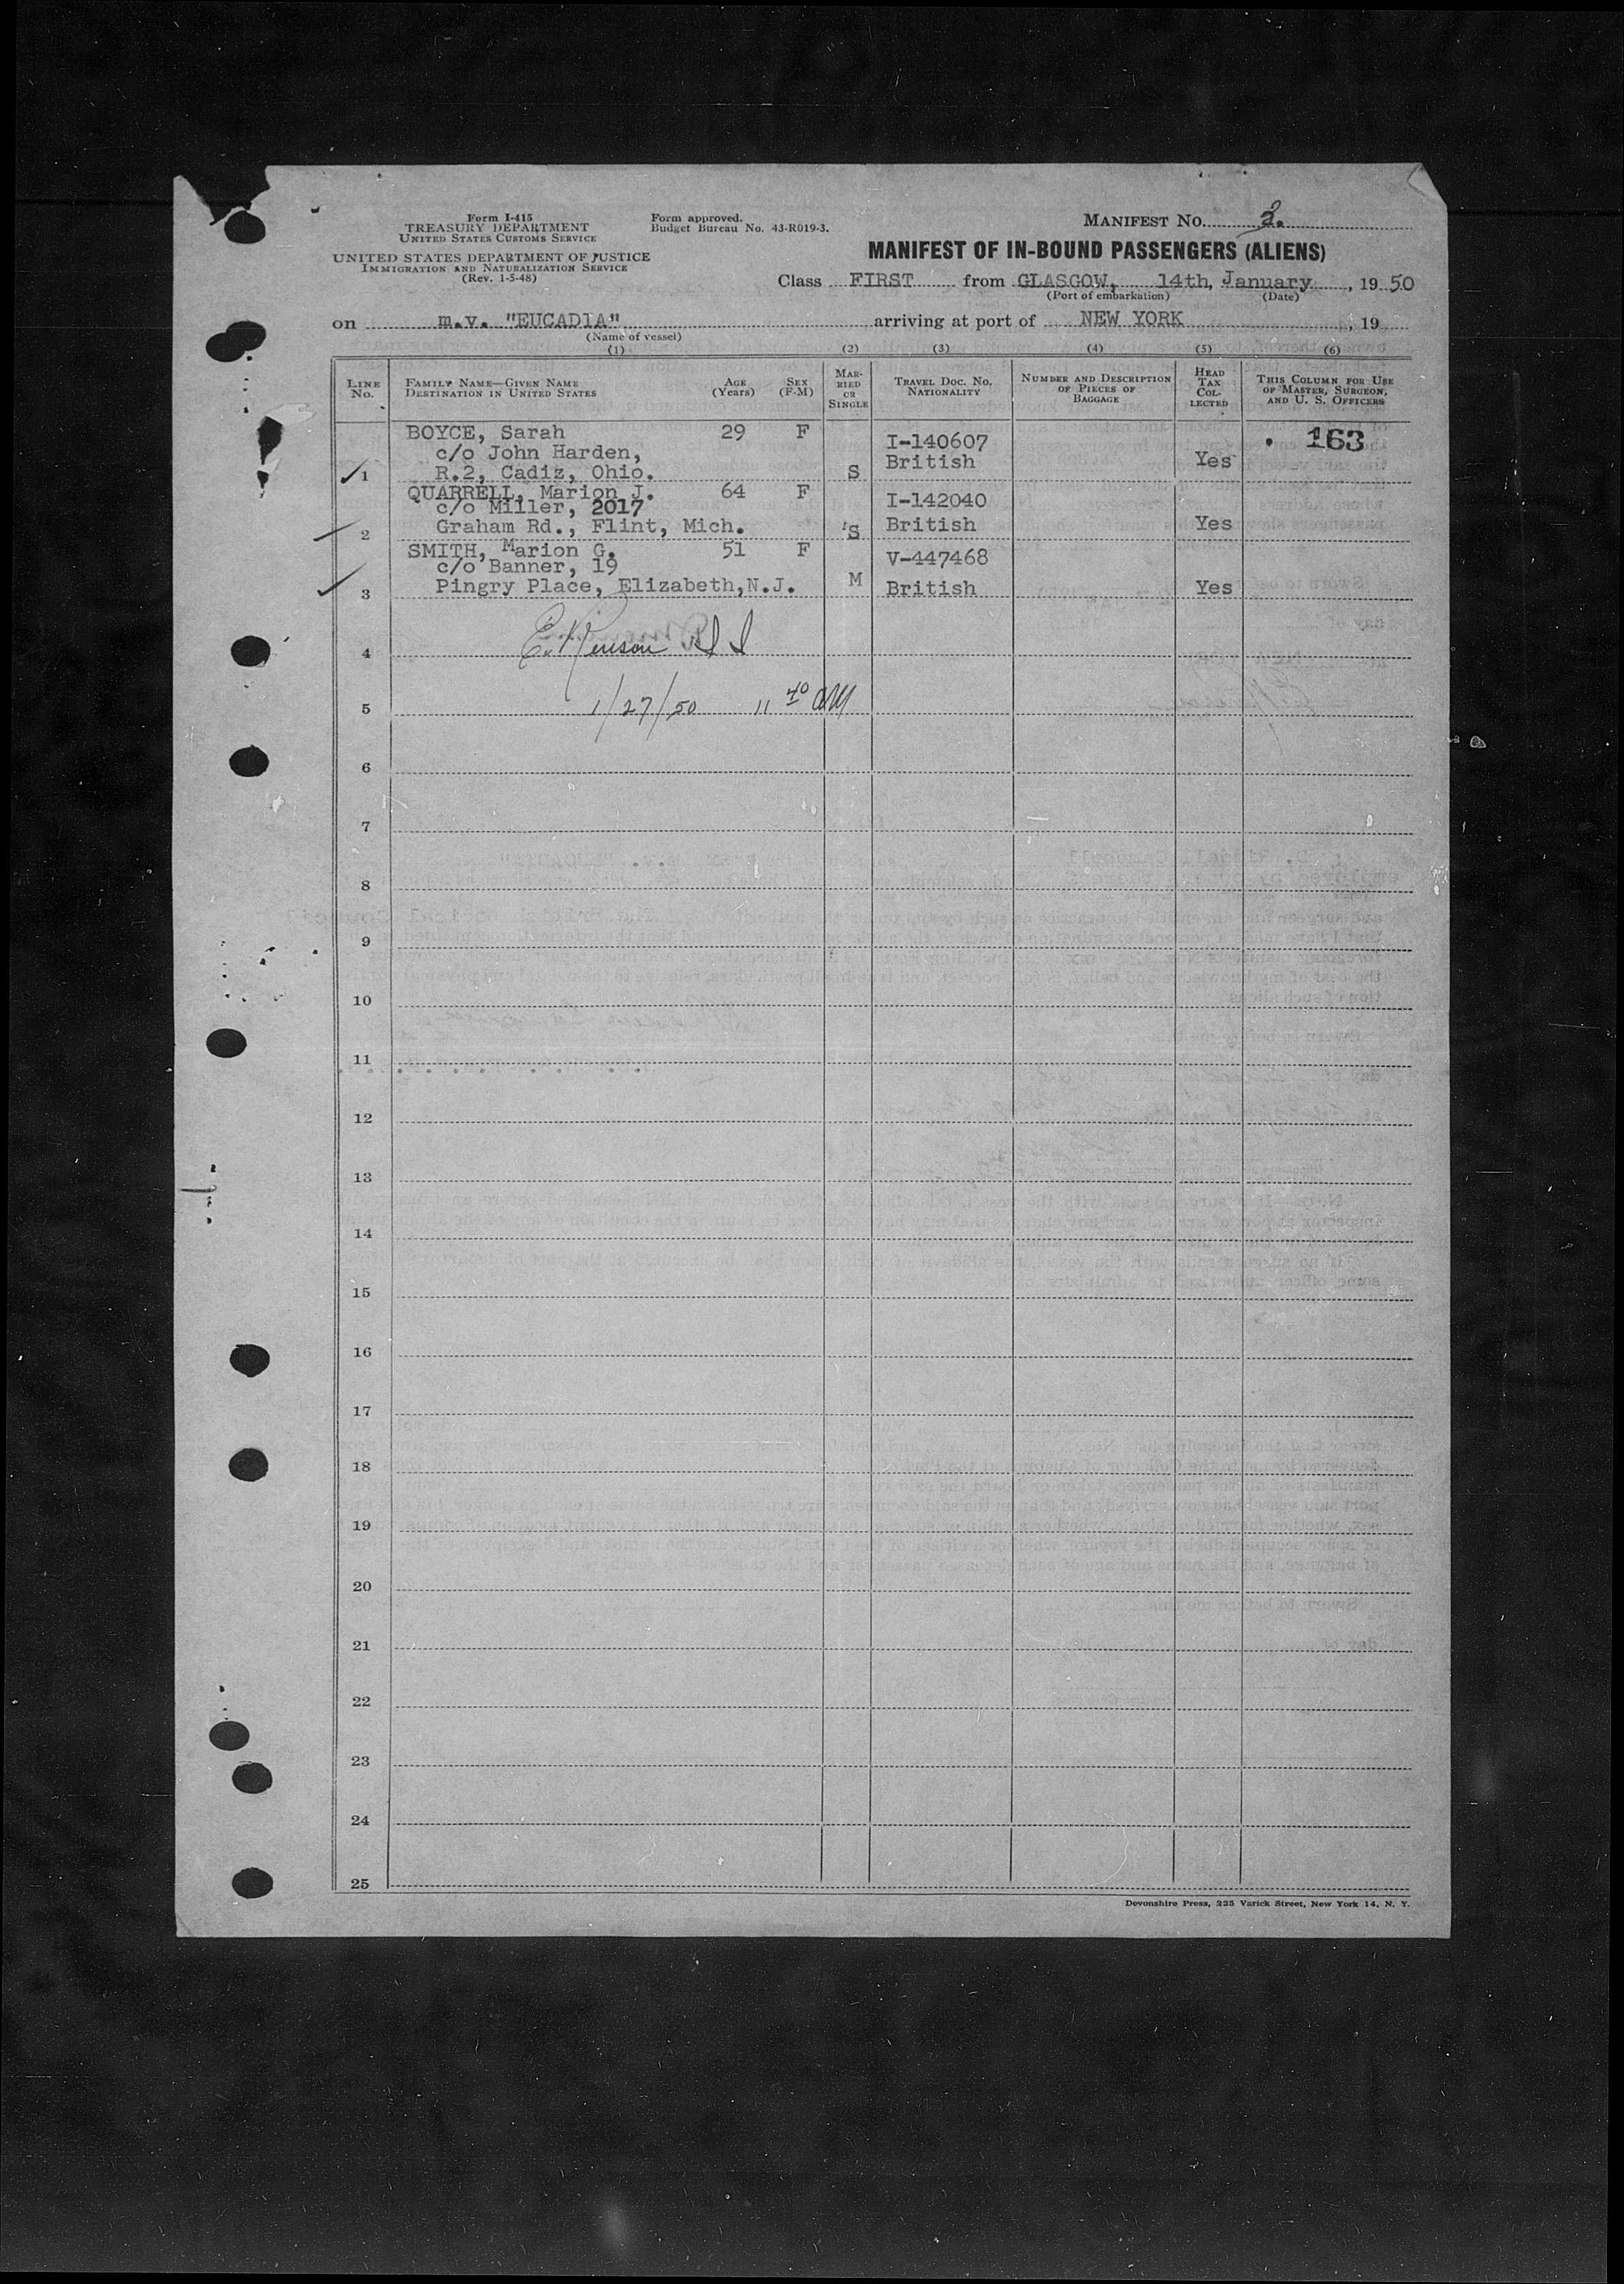 Form I-415
TREASURY DEPARTMENT
UNITED STATES CUSTOMS SERVICE
UNITED STATES DEPARTMENT OF JUSTICE
IMMIGRATION AND NATURALIZATION SERVICE
(Rev. 1-5-48)
Form approved.
Budget Bureau No. 43-R019-3.
MANIFEST No. 2.
MANIFEST OF IN-BOUND PASSENGERS (ALIENS)
Class FIRST from GLASGOW, 14th, January, 19 50
(Port of embarkation) (Date)
on m.v. "EUCADIA" arriving at port of NEW YORK, 19
(Name of vessel)
(1) (2) (3) (4) (5) (6)
LINE No. FAMILY NAME—GIVEN NAME DESTINATION IN UNITED STATES AGE (Years) SEX (F-M) MARRIED OR SINGLE TRAVEL DOC. NO. NATIONALITY NUMBER AND DESCRIPTION OF PIECES OF BAGGAGE HEAD TAX COLLECTED THIS COLUMN FOR USE OF MASTER, SURGEON, AND U. S. OFFICERS
BOYCE, Sarah 29 F I-140607 163
c/o John Harden, British Yes
1 R.2, Cadiz, Ohio. S
QUARRELL, Marion J. 64 F I-142040
c/o Miller, 2017
2 Graham Rd., Flint, Mich. S British Yes
SMITH, Marion G. 51 F V-447468
c/o Banner, 19
3 Pingry Place, Elizabeth,N.J. M British Yes
4
5 1/27/50 11 40 AM
6
7
8
9
10
11
12
13
14
15
16
17
18
19
20
21
22
23
24
25
Devonshire Press, 225 Varick Street, New York 14, N. Y.